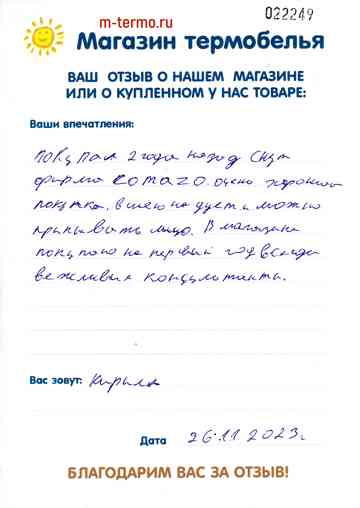 m-termo.ru
022249
Магазин термобелья
ВАШ ОТЗЫВ О НАШЕМ МАГАЗИНЕ
ИЛИ О КУПЛЕННОМ У НАС ТОВАРЕ:
Ваши впечатления:
покупал 2 года назад снуд
фирма comazo. очень хорошая
покупка. в шею не дует и можно
прикрывать лицо. В магазине
покупаю не первый год всегда
вежливые консультанты.
Вас зовут: Кирилл
Дата 26.11.2023г.
БЛАГОДАРИМ ВАС ЗА ОТЗЫВ!